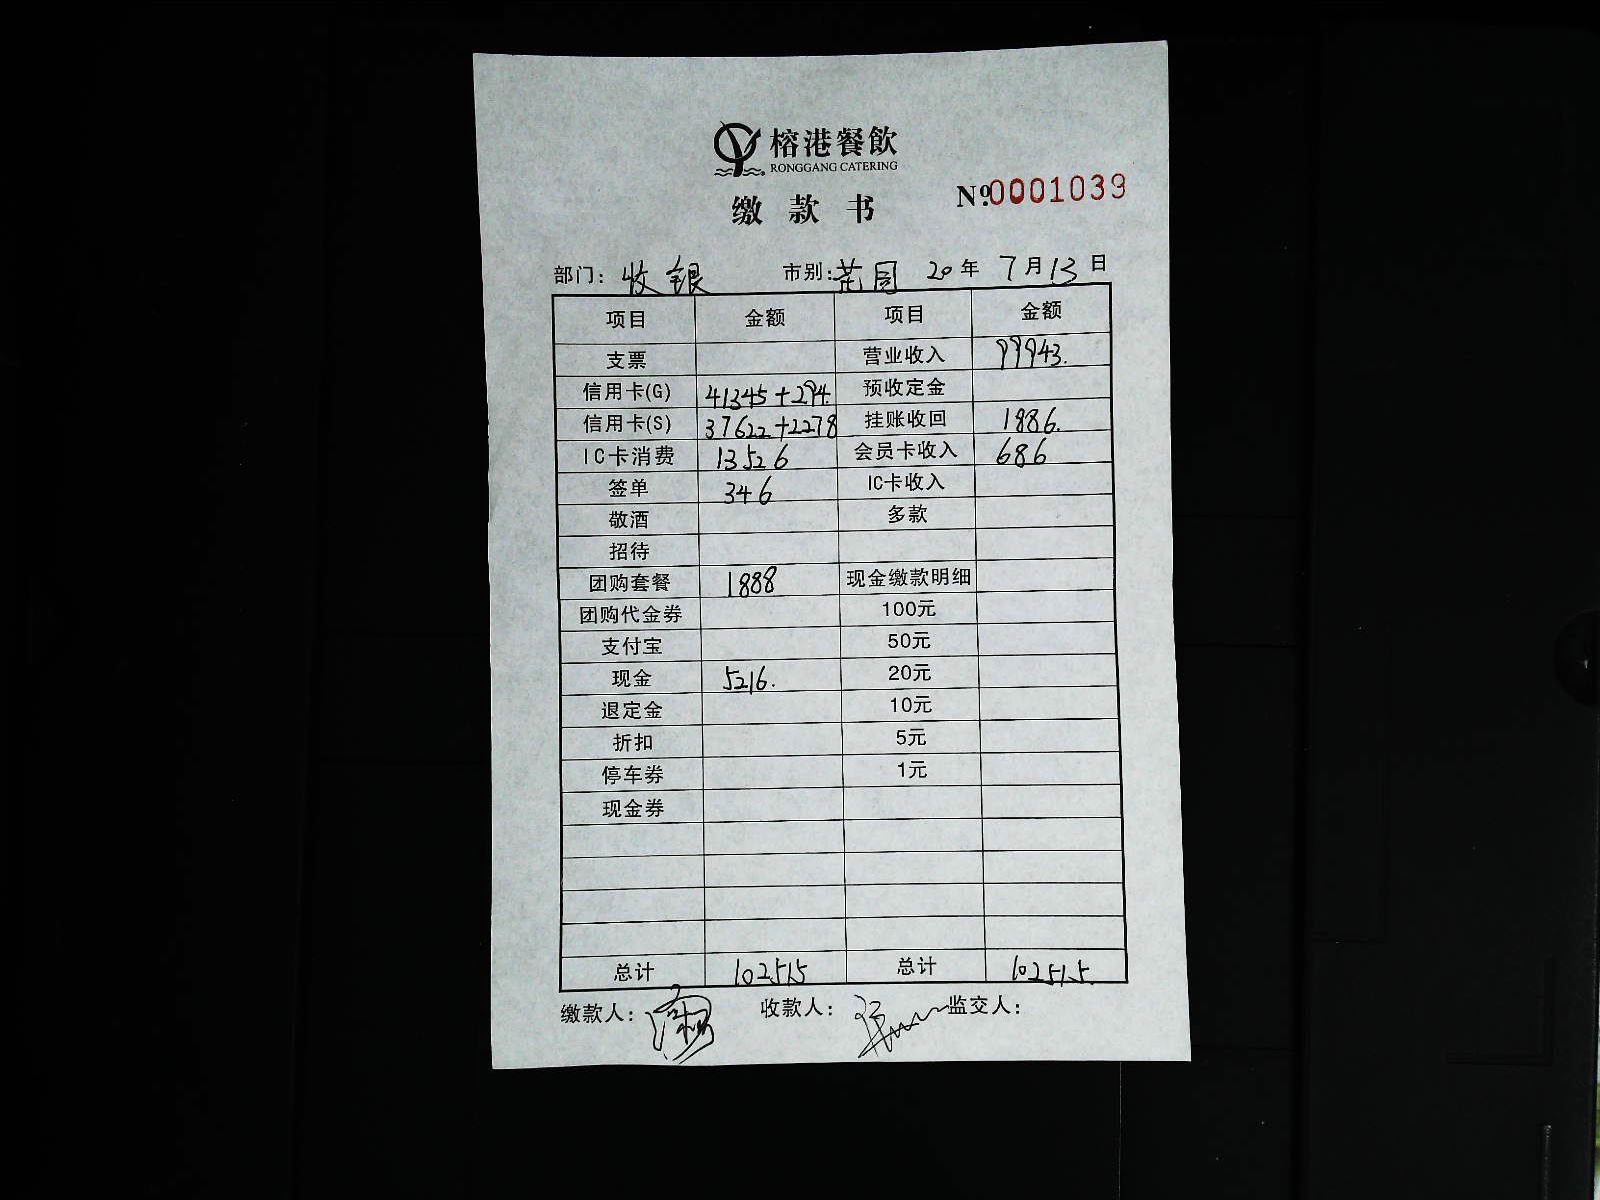 榕港餐飲
RONGGANG CATERING
缴款书
№:0001039
部门: 收银 市别: 20年 7月13日
项目 金额 项目 金额
支票 营业收入 99943.
信用卡(G) 41345+294. 预收定金
信用卡(S) 37622+2278 挂账收回 1886.
IC卡消费 13526 会员卡收入 686
签单 346 IC卡收入
敬酒 多款
招待
团购套餐 1888 现金缴款明细
团购代金券 100元
支付宝 50元
现金 5216. 20元
退定金 10元
折扣 5元
停车券 1元
现金券
总计 102515 总计 102515.
缴款人: 收款人: 监交人: